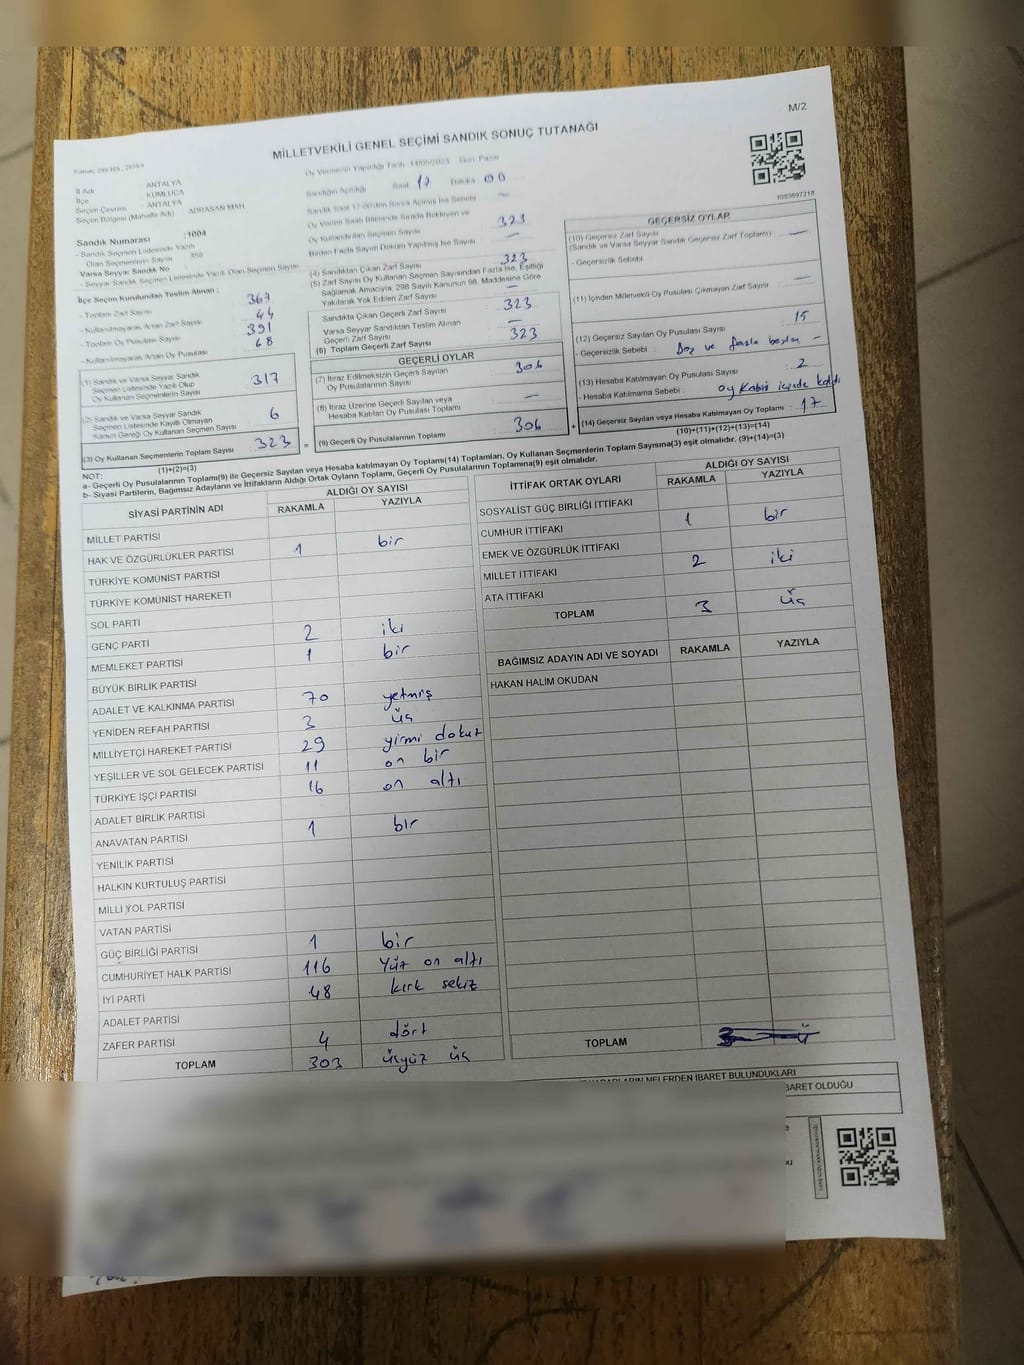 M/2
MİLLETVEKİLİ GENEL SEÇİMİ SANDIK SONUÇ TUTANAĞI
1083697218
İl Adı : ANTALYA
İlçe : KUMLUCA
Seçim Çevresi : ANTALYA
Seçim Bölgesi (Mahalle Adı) : ADRASAN MAH.
Sandık Numarası : 1004
- Sandık Seçmen Listesinde Yazılı
Olan Seçmenlerin Sayısı
Varsa Seyyar Sandık No
- Seyyar Sandık Seçmen Listesinde Yazılı Olan Seçmen Sayısı
İlçe Seçim Kurulundan Teslim Alınan :
- Toplam Zarf Sayısı : 367
- Kullanılmayarak Artan Zarf Sayısı : 44
- Toplam Oy Pusulası Sayısı : 391
- Kullanılmayarak Artan Oy Pusulası : 68
(1) Sandık ve Varsa Seyyar Sandık
Seçmen Listesinde Yazılı Olup
Oy Kullanan Seçmenlerin Sayısı : 317
(2) Sandık ve Varsa Seyyar Sandık
Seçmen Listesinde Kayıtlı Olmayan
Kanun Gereği Oy Kullanan Seçmen Sayısı : 6
(3) Oy Kullanan Seçmenlerin Toplam Sayısı : 323
(1)+(2)=(3)
Oy Vermenin Yapıldığı Tarih 14/05/2023 Gün Pazar
Sandığın Açıldığı Saat 17 Dakika 00
Sandık Saat 17:00'den Sonra Açılmış İse Sebebi : —
Oy Verme Saati Bitiminde Sırada Bekleyen ve
Oy Kullandırılan Seçmen Sayısı : 323
Birden Fazla Sayım Döküm Yapılmış İse Sayısı : —
(4) Sandıktan Çıkan Zarf Sayısı : 323
(5) Zarf Sayısı Oy Kullanan Seçmen Sayısından Fazla İse, Eşitliği
Sağlamak Amacıyla, 298 Sayılı Kanunun 98. Maddesine Göre
Yakılarak Yok Edilen Zarf Sayısı : —
Sandıkta Çıkan Geçerli Zarf Sayısı : 323
Varsa Seyyar Sandıktan Teslim Alınan
Geçerli Zarf Sayısı : —
(6) Toplam Geçerli Zarf Sayısı : 323
GEÇERLİ OYLAR
(7) İtiraz Edilmeksizin Geçerli Sayılan
Oy Pusulalarının Sayısı : 306
(8) İtiraz Üzerine Geçerli Sayılan veya
Hesaba Katılan Oy Pusulası Toplamı : —
= (9) Geçerli Oy Pusulalarının Toplamı : 306
GEÇERSİZ OYLAR
(10) Geçersiz Zarf Sayısı
(Sandık ve Varsa Seyyar Sandık Geçersiz Zarf Toplamı) : —
- Geçersizlik Sebebi :
(11) İçinden Milletvekili Oy Pusulası Çıkmayan Zarf Sayısı : —
(12) Geçersiz Sayılan Oy Pusulası Sayısı : 15
- Geçersizlik Sebebi : Boş ve fazla basılan —
(13) Hesaba Katılmayan Oy Pusulası Sayısı : 2
- Hesaba Katılmama Sebebi : oy Kabini içinde kaldı
+ (14) Geçersiz Sayılan veya Hesaba Katılmayan Oy Toplamı : 17
(10)+(11)+(12)+(13)=(14)
NOT:
a- Geçerli Oy Pusulalarının Toplamı(9) ile Geçersiz Sayılan veya Hesaba katılmayan Oy Toplamı(14) Toplamları, Oy Kullanan Seçmenlerin Toplam Sayısına(3) eşit olmalıdır. (9)+(14)=(3)
b- Siyasi Partilerin, Bağımsız Adayların ve İttifakların Aldığı Ortak Oyların Toplamı, Geçerli Oy Pusulalarının Toplamına(9) eşit olmalıdır.
SİYASİ PARTİNİN ADI ALDIĞI OY SAYISI
RAKAMLA YAZIYLA
MİLLET PARTİSİ
HAK VE ÖZGÜRLÜKLER PARTİSİ 1 bir
TÜRKİYE KOMÜNİST PARTİSİ
TÜRKİYE KOMÜNİST HAREKETİ
SOL PARTİ
GENÇ PARTİ 2 iki
MEMLEKET PARTİSİ 1 bir
BÜYÜK BİRLİK PARTİSİ
ADALET VE KALKINMA PARTİSİ 70 yetmiş
YENİDEN REFAH PARTİSİ 3 üç
MİLLİYETÇİ HAREKET PARTİSİ 29 yirmi dokuz
YEŞİLLER VE SOL GELECEK PARTİSİ 11 on bir
TÜRKİYE İŞÇİ PARTİSİ 16 on altı
ADALET BİRLİK PARTİSİ
ANAVATAN PARTİSİ 1 bir
YENİLİK PARTİSİ
HALKIN KURTULUŞ PARTİSİ
MİLLİ YOL PARTİSİ
VATAN PARTİSİ
GÜÇ BİRLİĞİ PARTİSİ 1 bir
CUMHURİYET HALK PARTİSİ 116 Yüz on altı
İYİ PARTİ 48 kırk sekiz
ADALET PARTİSİ
ZAFER PARTİSİ 4 dört
TOPLAM 303 üçyüz üç
İTTİFAK ORTAK OYLARI ALDIĞI OY SAYISI
RAKAMLA YAZIYLA
SOSYALİST GÜÇ BİRLİĞİ İTTİFAKI
CUMHUR İTTİFAKI 1 bir
EMEK VE ÖZGÜRLÜK İTTİFAKI
MİLLET İTTİFAKI 2 iki
ATA İTTİFAKI
TOPLAM 3 üç
BAĞIMSIZ ADAYIN ADI VE SOYADI RAKAMLA YAZIYLA
HAKAN HALİM OKUDAN
TOPLAM
NELERDEN İBARET BULUNDUKLARI
İBARET OLDUĞU